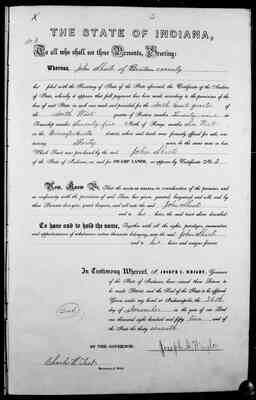 THE STATE OF INDIANA,
To all who shall see these Presents, Greeting:
Whereas, John Shultz of Benton county
has filed with the Secretary of State of the State aforesaid, the Certificate of the Auditor
of State, whereby it appears that full payment has been made according to the provisions of the
laws of said State in such case made and provided for the North East quarter
of the North West quarter of Section number Twenty
in Township number Twenty five North of Range number Six West
in the Crawfordsville district, where such lands were formerly offered for sale, containing
Forty acres, be the same more or less.
Which Tract was purchased by the said John Shultz
of the State of Indiana, as and for SWAMP LANDS, as appears by Certificate No. 2
Now, Know Ye, That the STATE OF INDIANA, in consideration of the premises, and
in conformity with the provisions of said Laws, has given, granted, bargained and sold, and by
these Presents does give, grant, bargain, and sell unto the said John Shultz
and to his heirs, the said tract above described.
To have and to hold the same, Together with all the rights, privileges, immunities,
and appurtenances of whatsoever nature thereunto belonging, unto the said John Shultz
and to his heirs and assigns forever.
In Testimony Whereof, I, JOSEPH A. WRIGHT, Governor
of the State of Indiana, have caused these Letters to
be made Patent, and the Seal of the State to be affixed.
Given under my hand at Indianapolis, the 26th
day of November in the year of our Lord
one thousand eight hundred and fifty two and of
the State the thirty seventh
Seal
BY THE GOVERNOR:
Joseph A. Wright
Charles H. Test
Secretary of State